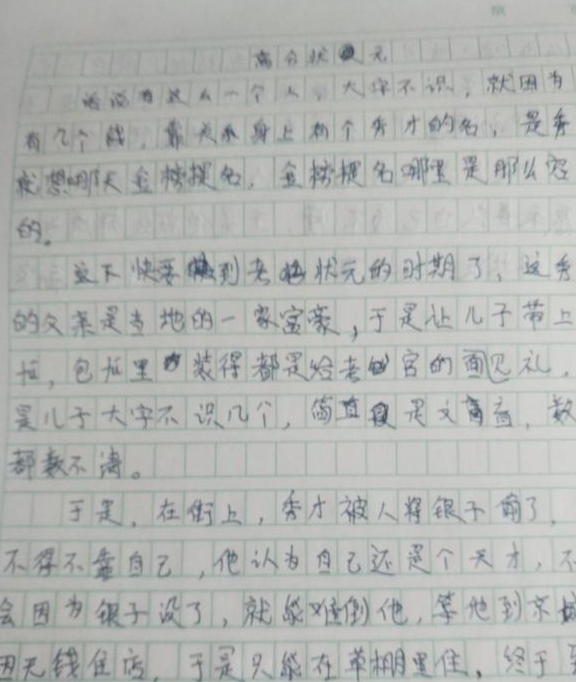 高分状元
话说有这么一个人,大字不识,就因为
有几个钱,靠关系身上有个秀才的名,是秀
就想哪天金榜提名,金榜提名哪里是那么容
的。
这下快要到考状元的时期了,这秀
的父亲是当地的一家富豪,于是让儿子带上
包,包里装得都是给考官的面见礼,
是儿子大字不识几个,简直是文盲,数
都数不清。
于是,在街上,秀才被人将银子偷了,
不得不靠自己,他认为自己还是个天才,不
会因为银子没了,就能难倒他,等他到京城
因无钱住店,于是只能在草棚里住,终于到